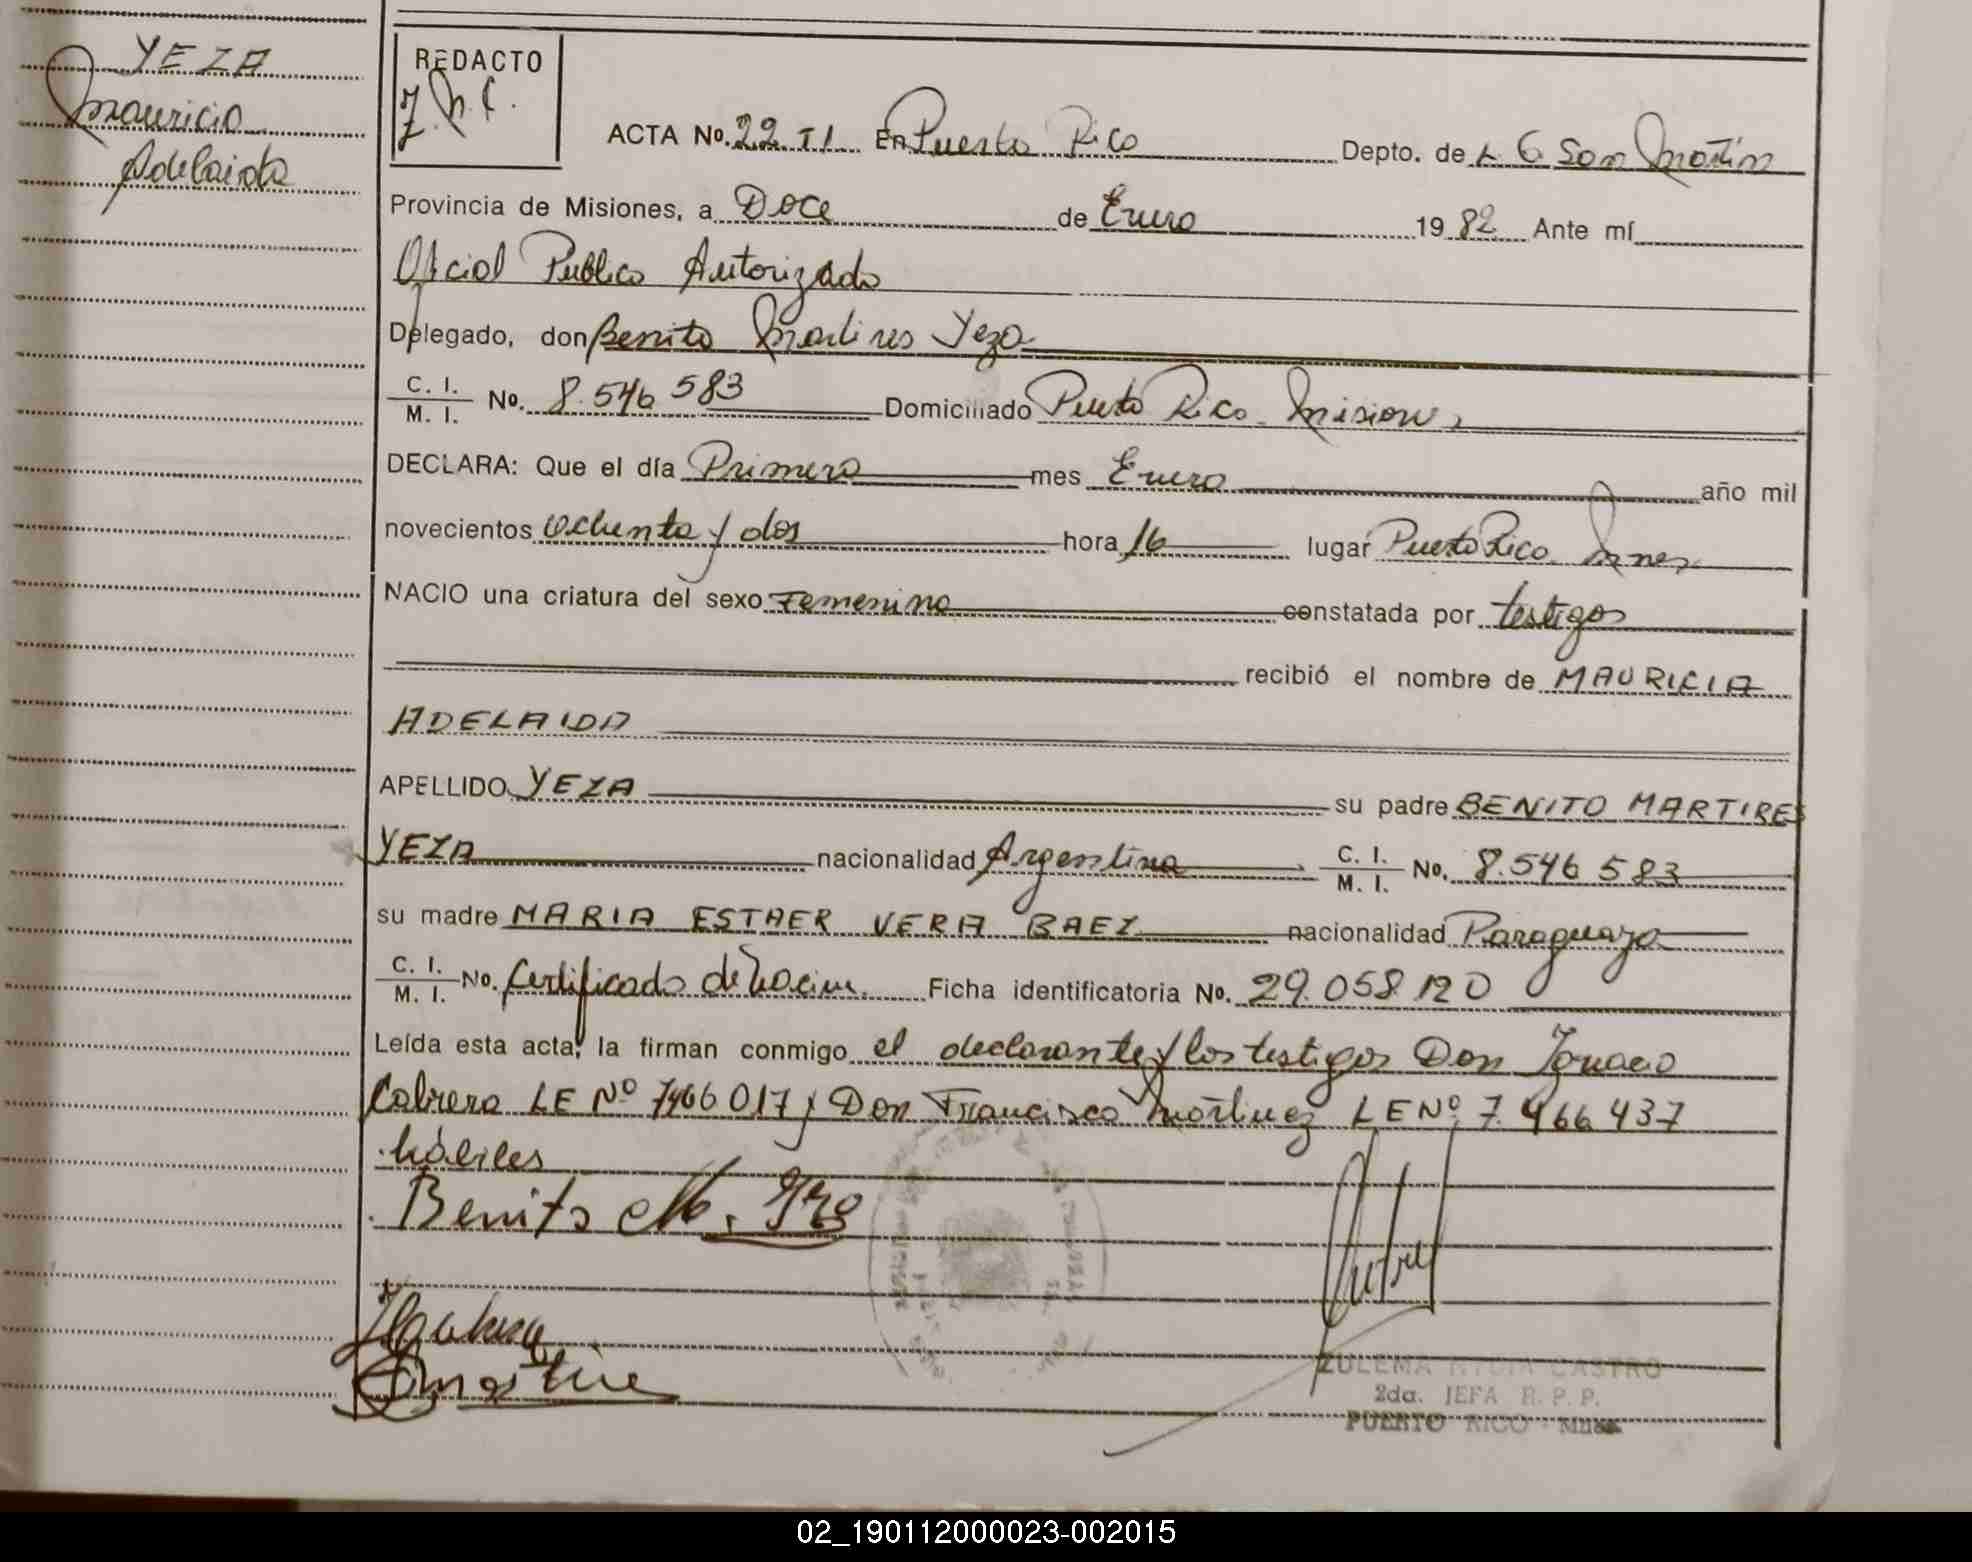 YEZA
Mauricia
Adelaida
REDACTO
Z. N. C.
ACTA No. 22 TI En Puerto Rico Depto. de L G San Martin
Provincia de Misiones, a Doce de Enero 1982 Ante mí
Oficial Publico Autorizado
Delegado, don Benito Martires Yeza
C. I. / M. I. No. 8.546 583 Domiciliado Puerto Rico Misiones
DECLARA: Que el día Primero mes Enero año mil
novecientos ochenta y dos hora 16 lugar Puerto Rico Mnes
NACIO una criatura del sexo Femenino constatada por testigos
recibió el nombre de MAURICIA
ADELAIDA
APELLIDO YEZA su padre BENITO MARTIRES
YEZA nacionalidad Argentina C. I. / M. I. No. 8.546 583
su madre MARIA ESTHER VERA BAEZ nacionalidad Paraguaya
C. I. / M. I. No. Certificado de Nacim. Ficha identificatoria No. 29.058.120
Leída esta acta, la firman conmigo el declarante y los testigos Don Ignacio
Cabrera LE Nº 7466 017 y Don Francisco Martinez LE Nº 7.466 437
hábiles
Benito M.
ZULEMA NYLIA CASTRO
2da. JEFA R. P. P.
PUERTO RICO - Mnes.
02_190112000023-002015